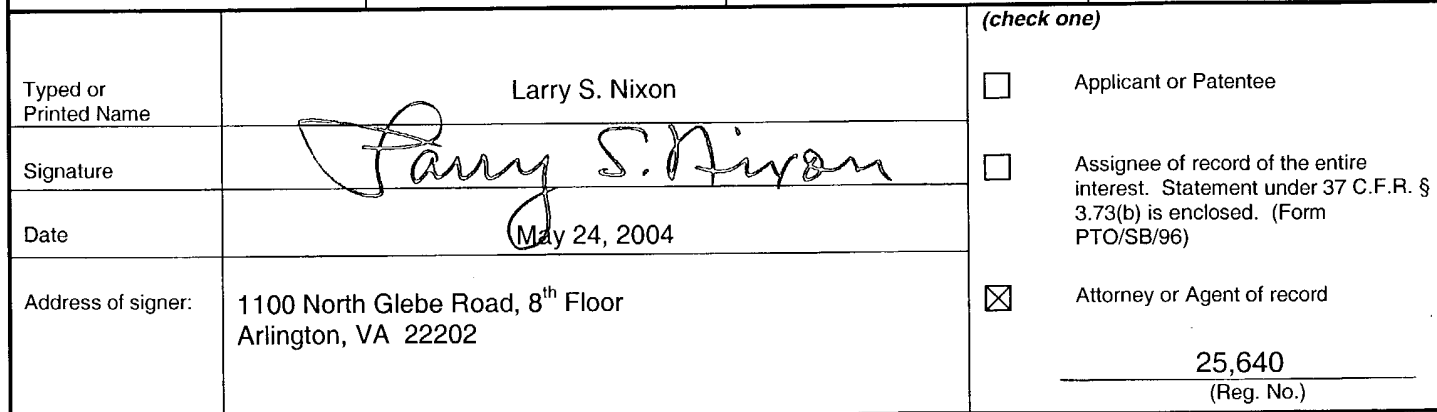 Typed or
Printed Name
Larry S. Nixon
Signature
Larry S. Nixon
Date
May 24, 2004
Address of signer:
1100 North Glebe Road, 8th Floor
Arlington, VA 22202
(check one)
Applicant or Patentee
Assignee of record of the entire
interest. Statement under 37 C.F.R. §
3.73(b) is enclosed. (Form
PTO/SB/96)
Attorney or Agent of record
25,640
(Reg. No.)